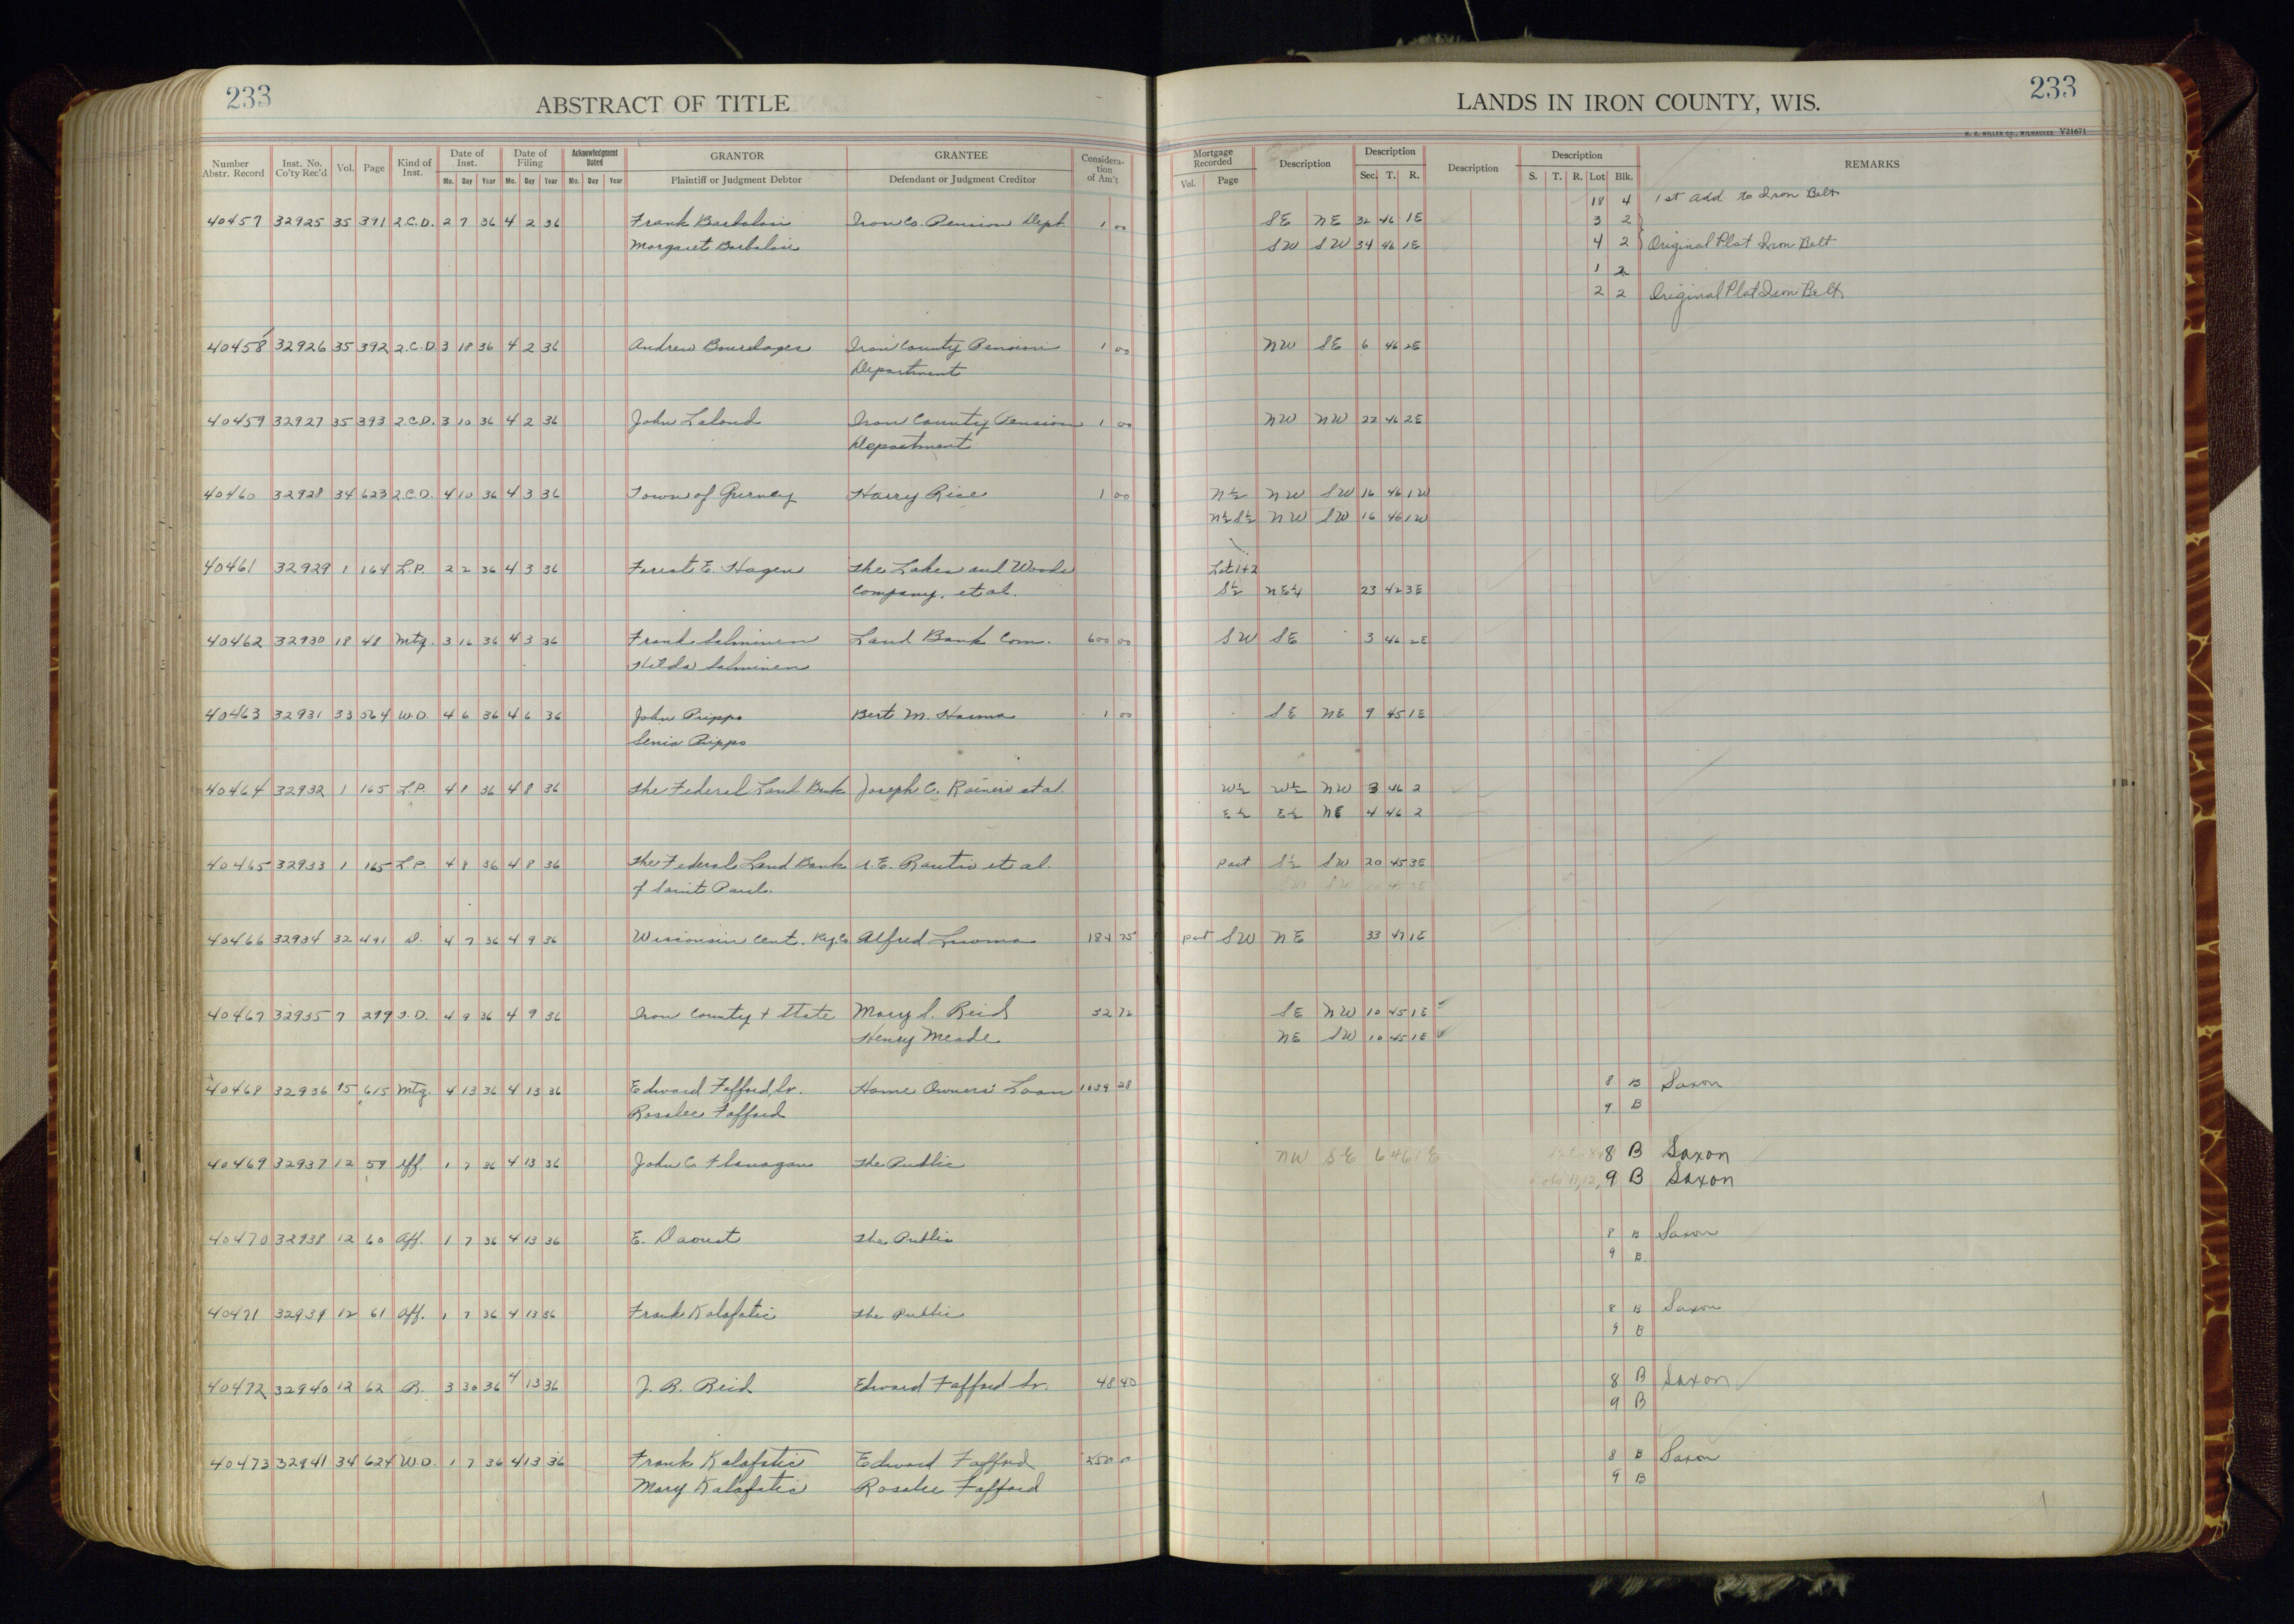 233
ABSTRACT OF TITLE
Number Abstr. Record Inst. No. Co'ty Rec'd Vol. Page Kind of Inst. Date of Inst. Date of Filing Acknowledgment Dated GRANTOR GRANTEE Considera-tion of Am't
Mo. Day Year Mo. Day Year Mo. Day Year Plaintiff or Judgment Debtor Defendant or Judgment Creditor
40457 32925 35 391 2.C.D. 2 7 36 4 2 36 Frank Barbolini Iron Co. Pension Dept. 1 00
Margaret Barbolini
40458 32926 35 392 2.C.D. 3 18 36 4 2 36 Andrew Bourdages Iron County Pension 1 00
Department
40459 32927 35 393 2.C.D. 3 10 36 4 2 36 John Lelond Iron County Pension 1 00
Department
40460 32928 34 623 2.C.D. 4 10 36 4 3 36 Town of Gurney Harry Rice 1 00
40461 32929 1 164 L.P. 2 2 36 4 3 36 Forest E. Hagen The Lakes and Woods
Company, et al.
40462 32930 18 48 Mtg. 3 16 36 4 3 36 Frank Salminen Land Bank Com. 600 00
Hilda Salminen
40463 32931 33 564 W.D. 4 6 36 4 6 36 John Piippo Bert M. Harma 1 00
Senia Piippo
40464 32932 1 165 L.P. 4 8 36 4 8 36 The Federal Land Bank Joseph C. Rainerio et al.
40465 32933 1 165 L.P. 4 8 36 4 8 36 The Federal Land Bank A. E. Rautio et al.
of Saint Paul.
40466 32934 32 491 D. 4 7 36 4 9 36 Wisconsin Cent. Ry. Co Alfred Luoma 184 75
40467 32935 7 299 T.D. 4 9 36 4 9 36 Iron County + State Mary S. Reid 32 72
Henry Meade
40468 32936 15 615 Mtg. 4 13 36 4 13 36 Edward Fafford, Sr. Home Owners' Loan 1039 28
Rosalee Fafford
40469 32937 12 59 Aff. 1 7 36 4 13 36 John C. Flanagan The Public
40470 32938 12 60 Aff. 1 7 36 4 13 36 E. Daoust The Public
40471 32939 12 61 Aff. 1 7 36 4 13 36 Frank Kalafatic The Public
40472 32940 12 62 R. 3 30 36 4 13 36 J. R. Reid Edward Fafford Sr. 48 40
40473 32941 34 624 W.D. 1 7 36 4 13 36 Frank Kalafatic Edward Fafford
Mary Kalafatic Rosalee Fafford
233
LANDS IN IRON COUNTY, WIS.
H. C. MILLER CO., MILWAUKEE V21671
Mortgage Recorded Description Description Description Description REMARKS
Vol. Page Sec. T. R. S. T. R. Lot Blk.
18 4 1st Add. to Iron Belt
SE NE 32 46 1E 3 2
SW SW 34 46 1E 4 2 Original Plat Iron Belt
1 2
2 2 Original Plat Iron Belt
NW SE 6 46 2E
NW NW 22 46 2E
N½ NW SW 16 46 1W
N½S½ NW SW 16 46 1W
Lot 1+2
S½ NE¼ 23 42 3E
SW SE 3 46 2E
SE NE 9 45 1E
W½ W½ NW 3 46 2
E½ E½ NE 4 46 2
part S½ SW 20 45 3E
part SW NE 33 47 1E
SE NW 10 45 1E
NE SW 10 45 1E
8 B Saxon
9 B
NW SE 6 46 1E 8 B Saxon
9 B Saxon
8 B Saxon
9 B
8 B Saxon
9 B
8 B Saxon
9 B
8 B Saxon
9 B